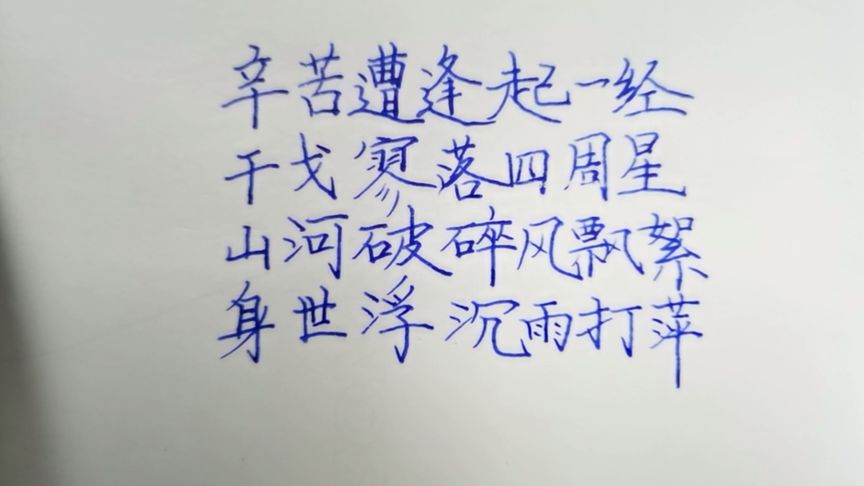 辛苦遭逢起一经
干戈寥落四周星
山河破碎风飘絮
身世浮沉雨打萍